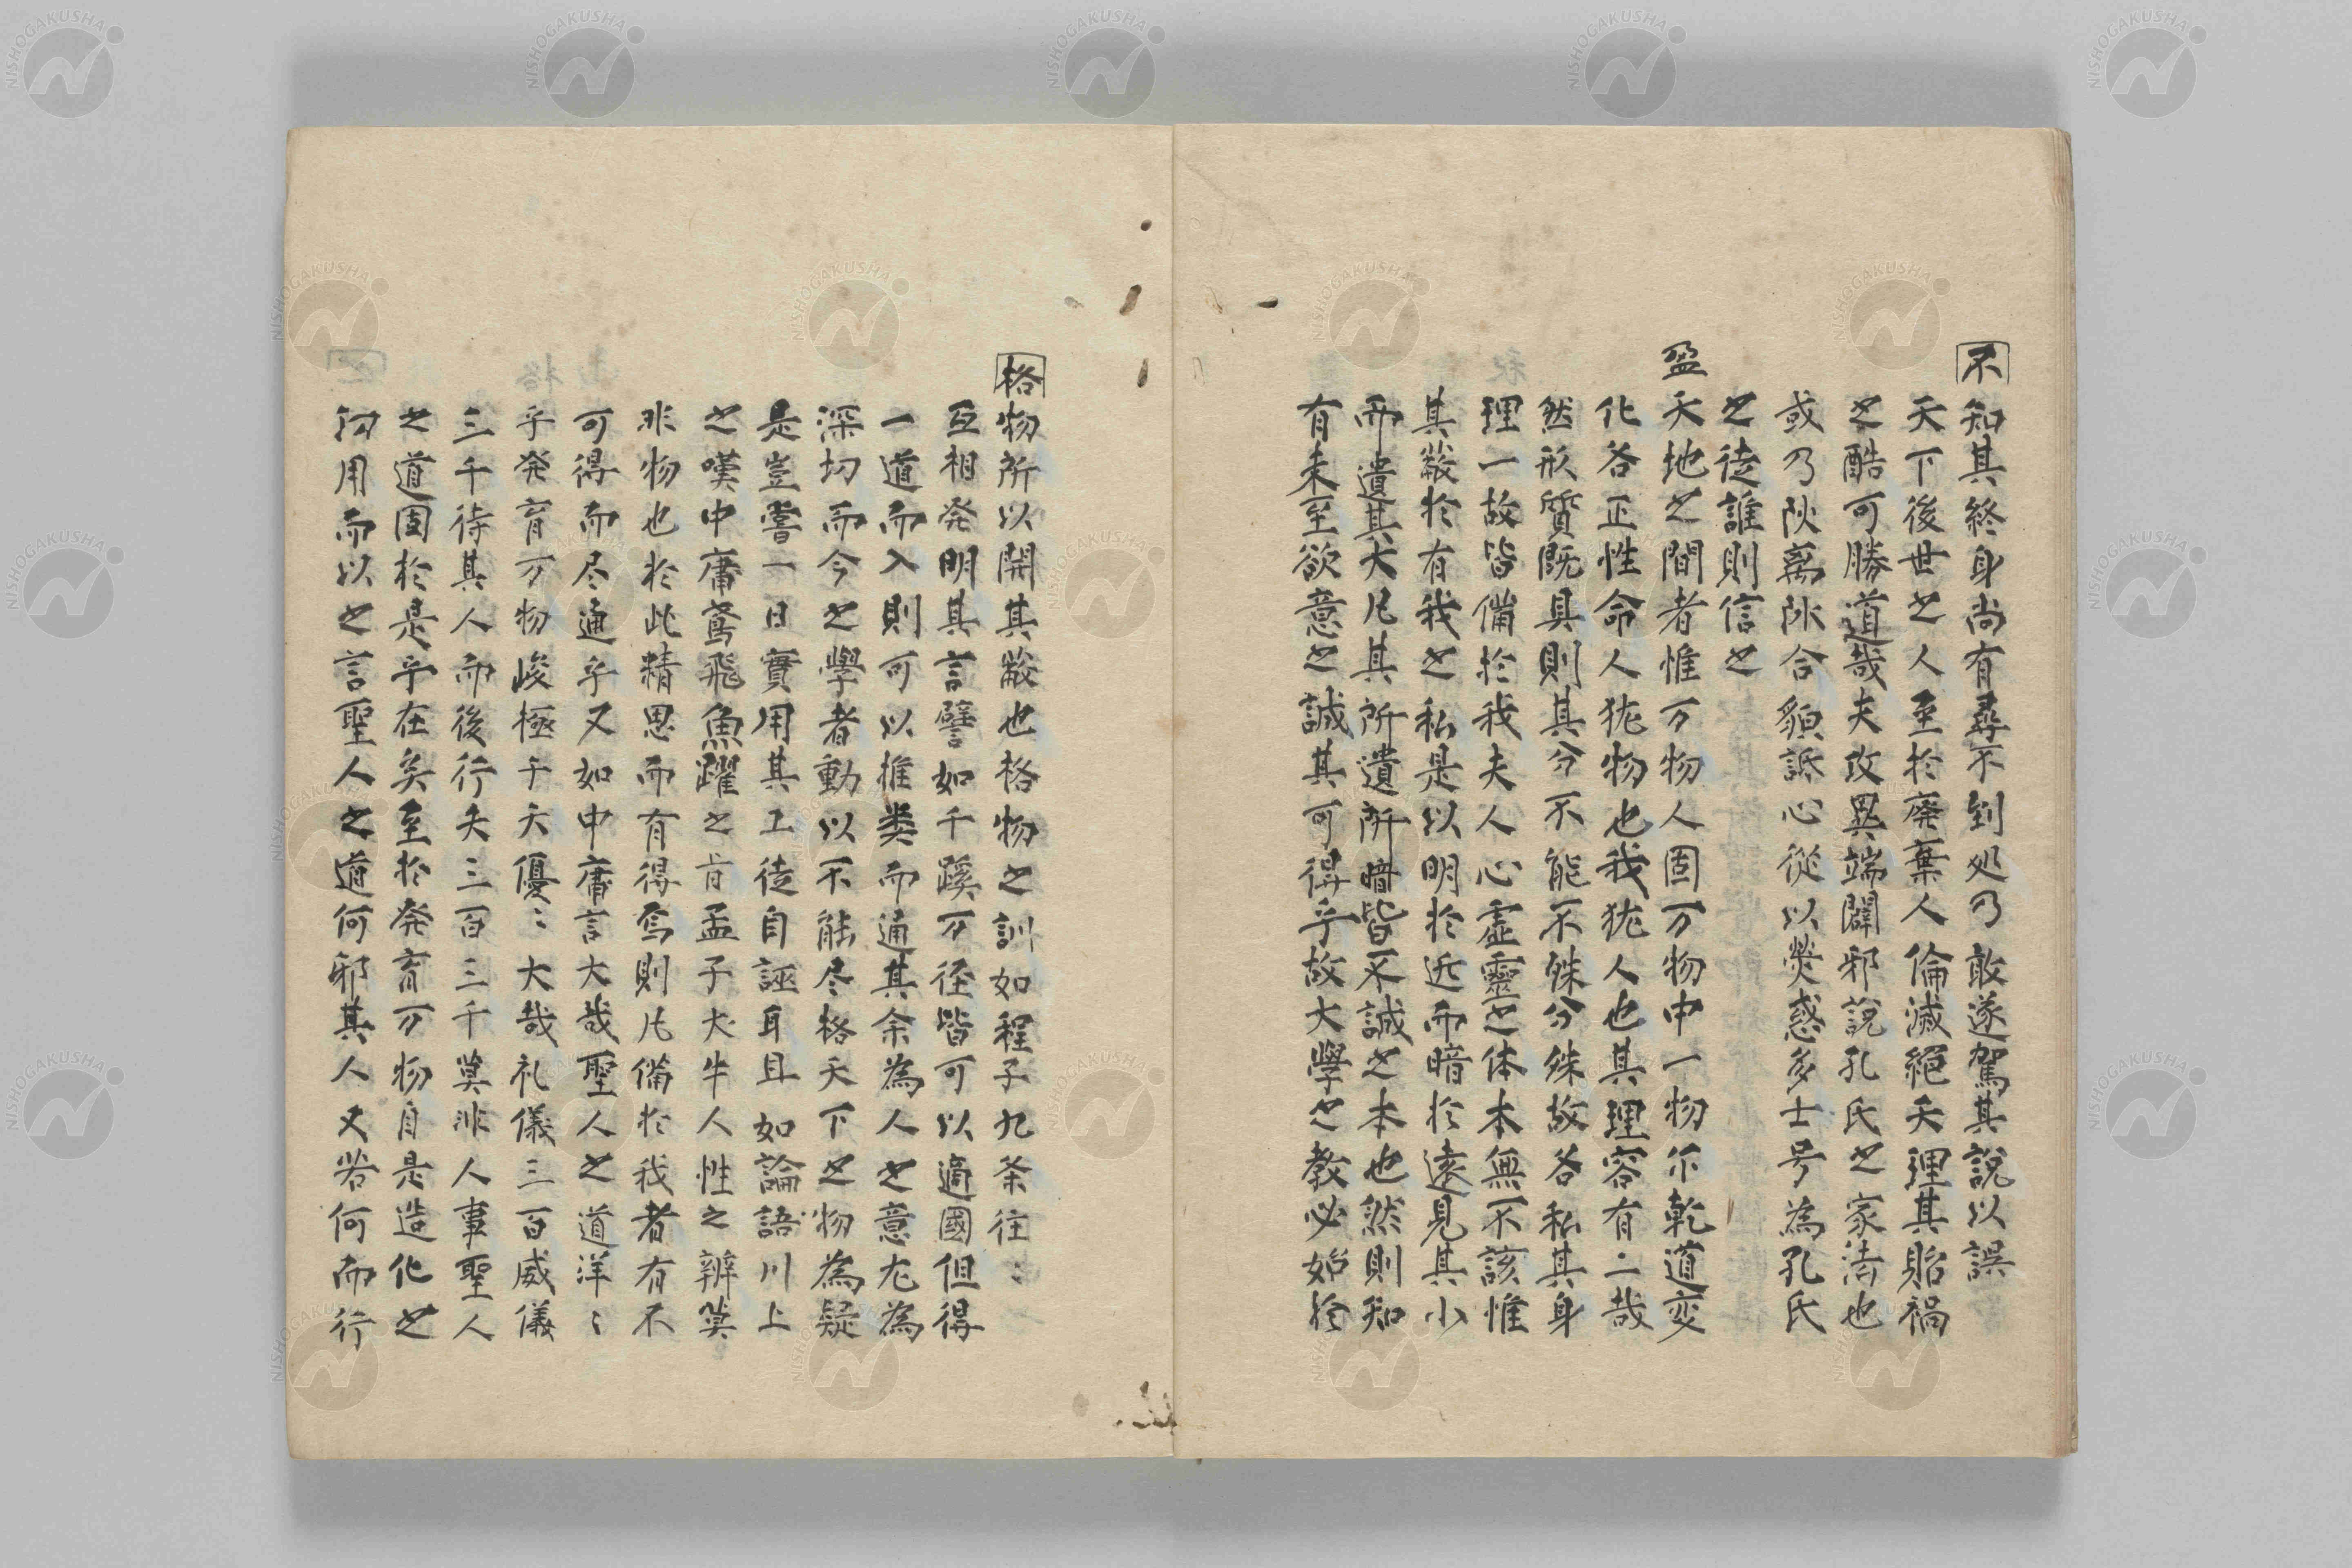 不知其終身尚有尋不到処乃敢遂駕其說以誤
天下後世之人至於廃棄人倫滅絕天理其貽禍
之酷可勝道哉夫攻異端闢邪說孔氏之家法也
或乃陽離陰合貌詆心從以熒惑多士号為孔氏
之徒誰則信之
盈天地之間者惟万物人固万物中一物尓乾道変
化各正性命人犹物也我犹人也其理容有二哉
然形質既具則其分不能不殊分殊故各私其身
理一故皆備於我夫人心虛靈之体本無不該惟
其蔽於有我之私是以明於近而暗於遠見其小
而遺其大凡其所遺所暗皆不誠之本也然則知
有未至欲意之誠其可得乎故大學之教必始於
格物所以開其蔽也格物之訓如程子九条往〻
互相発明其言譬如千蹊万径皆可以適國但得
一道而入則可以推类而通其余為人之意尤為
深切而今之學者動以不能尽格天下之物為疑
是豈嘗一日實用其工徒自誣耳且如論語川上
之嘆中庸鳶飛魚躍之旨孟子犬牛人性之辨莫
非物也於此精思而有得焉則凡備於我者有不
可得而尽通乎又如中庸言大哉聖人之道洋〻
乎発育万物峻極于天優〻大哉礼儀三百威儀
三千待其人而後行夫三百三千莫非人事聖人
之道固於是乎在矣至於発育万物自是造化之
功用而以之言聖人之道何邪其人又若何而行
NISHOGAKUSHA